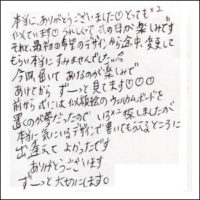 本当に、ありがとうございました！とっても×2
似ています！うれしくて 式の日が楽しみです
それと最初の希望のデザインから途中、変更して
もらい本当にすみませんでした。
今回 届いて あけるのが楽しみで
あけてから ずーっと見てます！！！
前から式には似顔絵のウェルカムボードを
置くのが夢だったので いろ×2 探しましたが
本当に気にいるデザインで書いてもらえるところに
出逢えて よかったです
ありがとうございます
ずーっと大切にします。